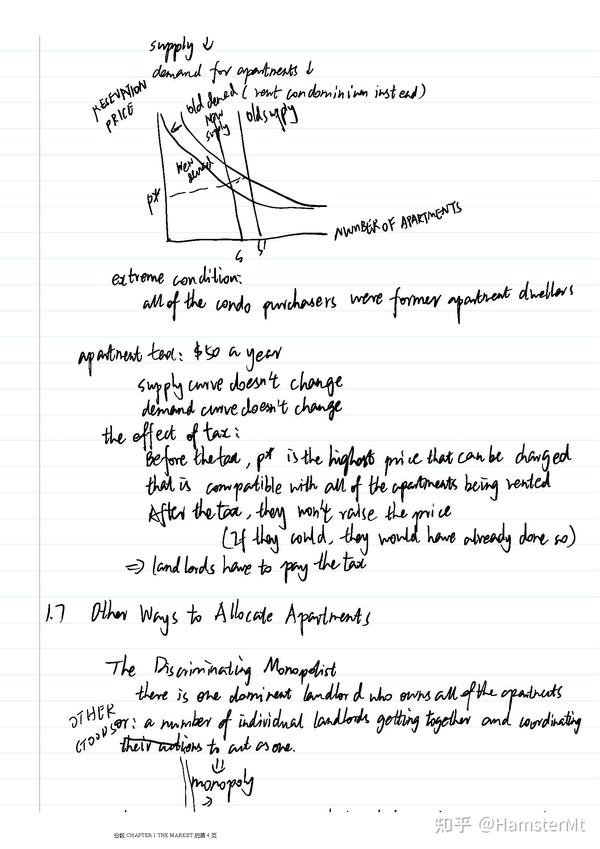 supply ↓
demand for apartments ↓
old demand (rent condominium instead)
RESERVATION
PRICE
New
supply
old supply
New
demand
p*
NUMBER OF APARTMENTS
S S'
extreme condition:
all of the condo purchasers were former apartment dwellers
apartment tax: $50 a year
supply curve doesn't change
demand curve doesn't change
the effect of tax:
Before the tax, p* is the highest price that can be charged
that is compatible with all of the apartments being rented
After the tax, they won't raise the price
(If they could, they would have already done so)
⇒ landlords have to pay the tax
1.7 Other Ways to Allocate Apartments
The Discriminating Monopolist
there is one dominent landlord who owns all of the apartments
OTHER
GOODS
or: a number of individual landlords getting together and coordinating
their actions to act as one.
⇓
monopoly
知乎 @HamsterMt
分区 CHAPTER 1 THE MARKET 的第 4 页